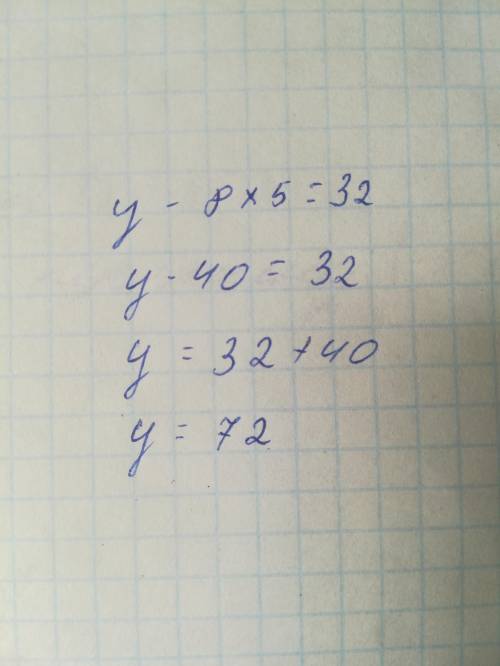 y - 8 × 5 = 32
y - 40 = 32
y = 32 + 40
y = 72